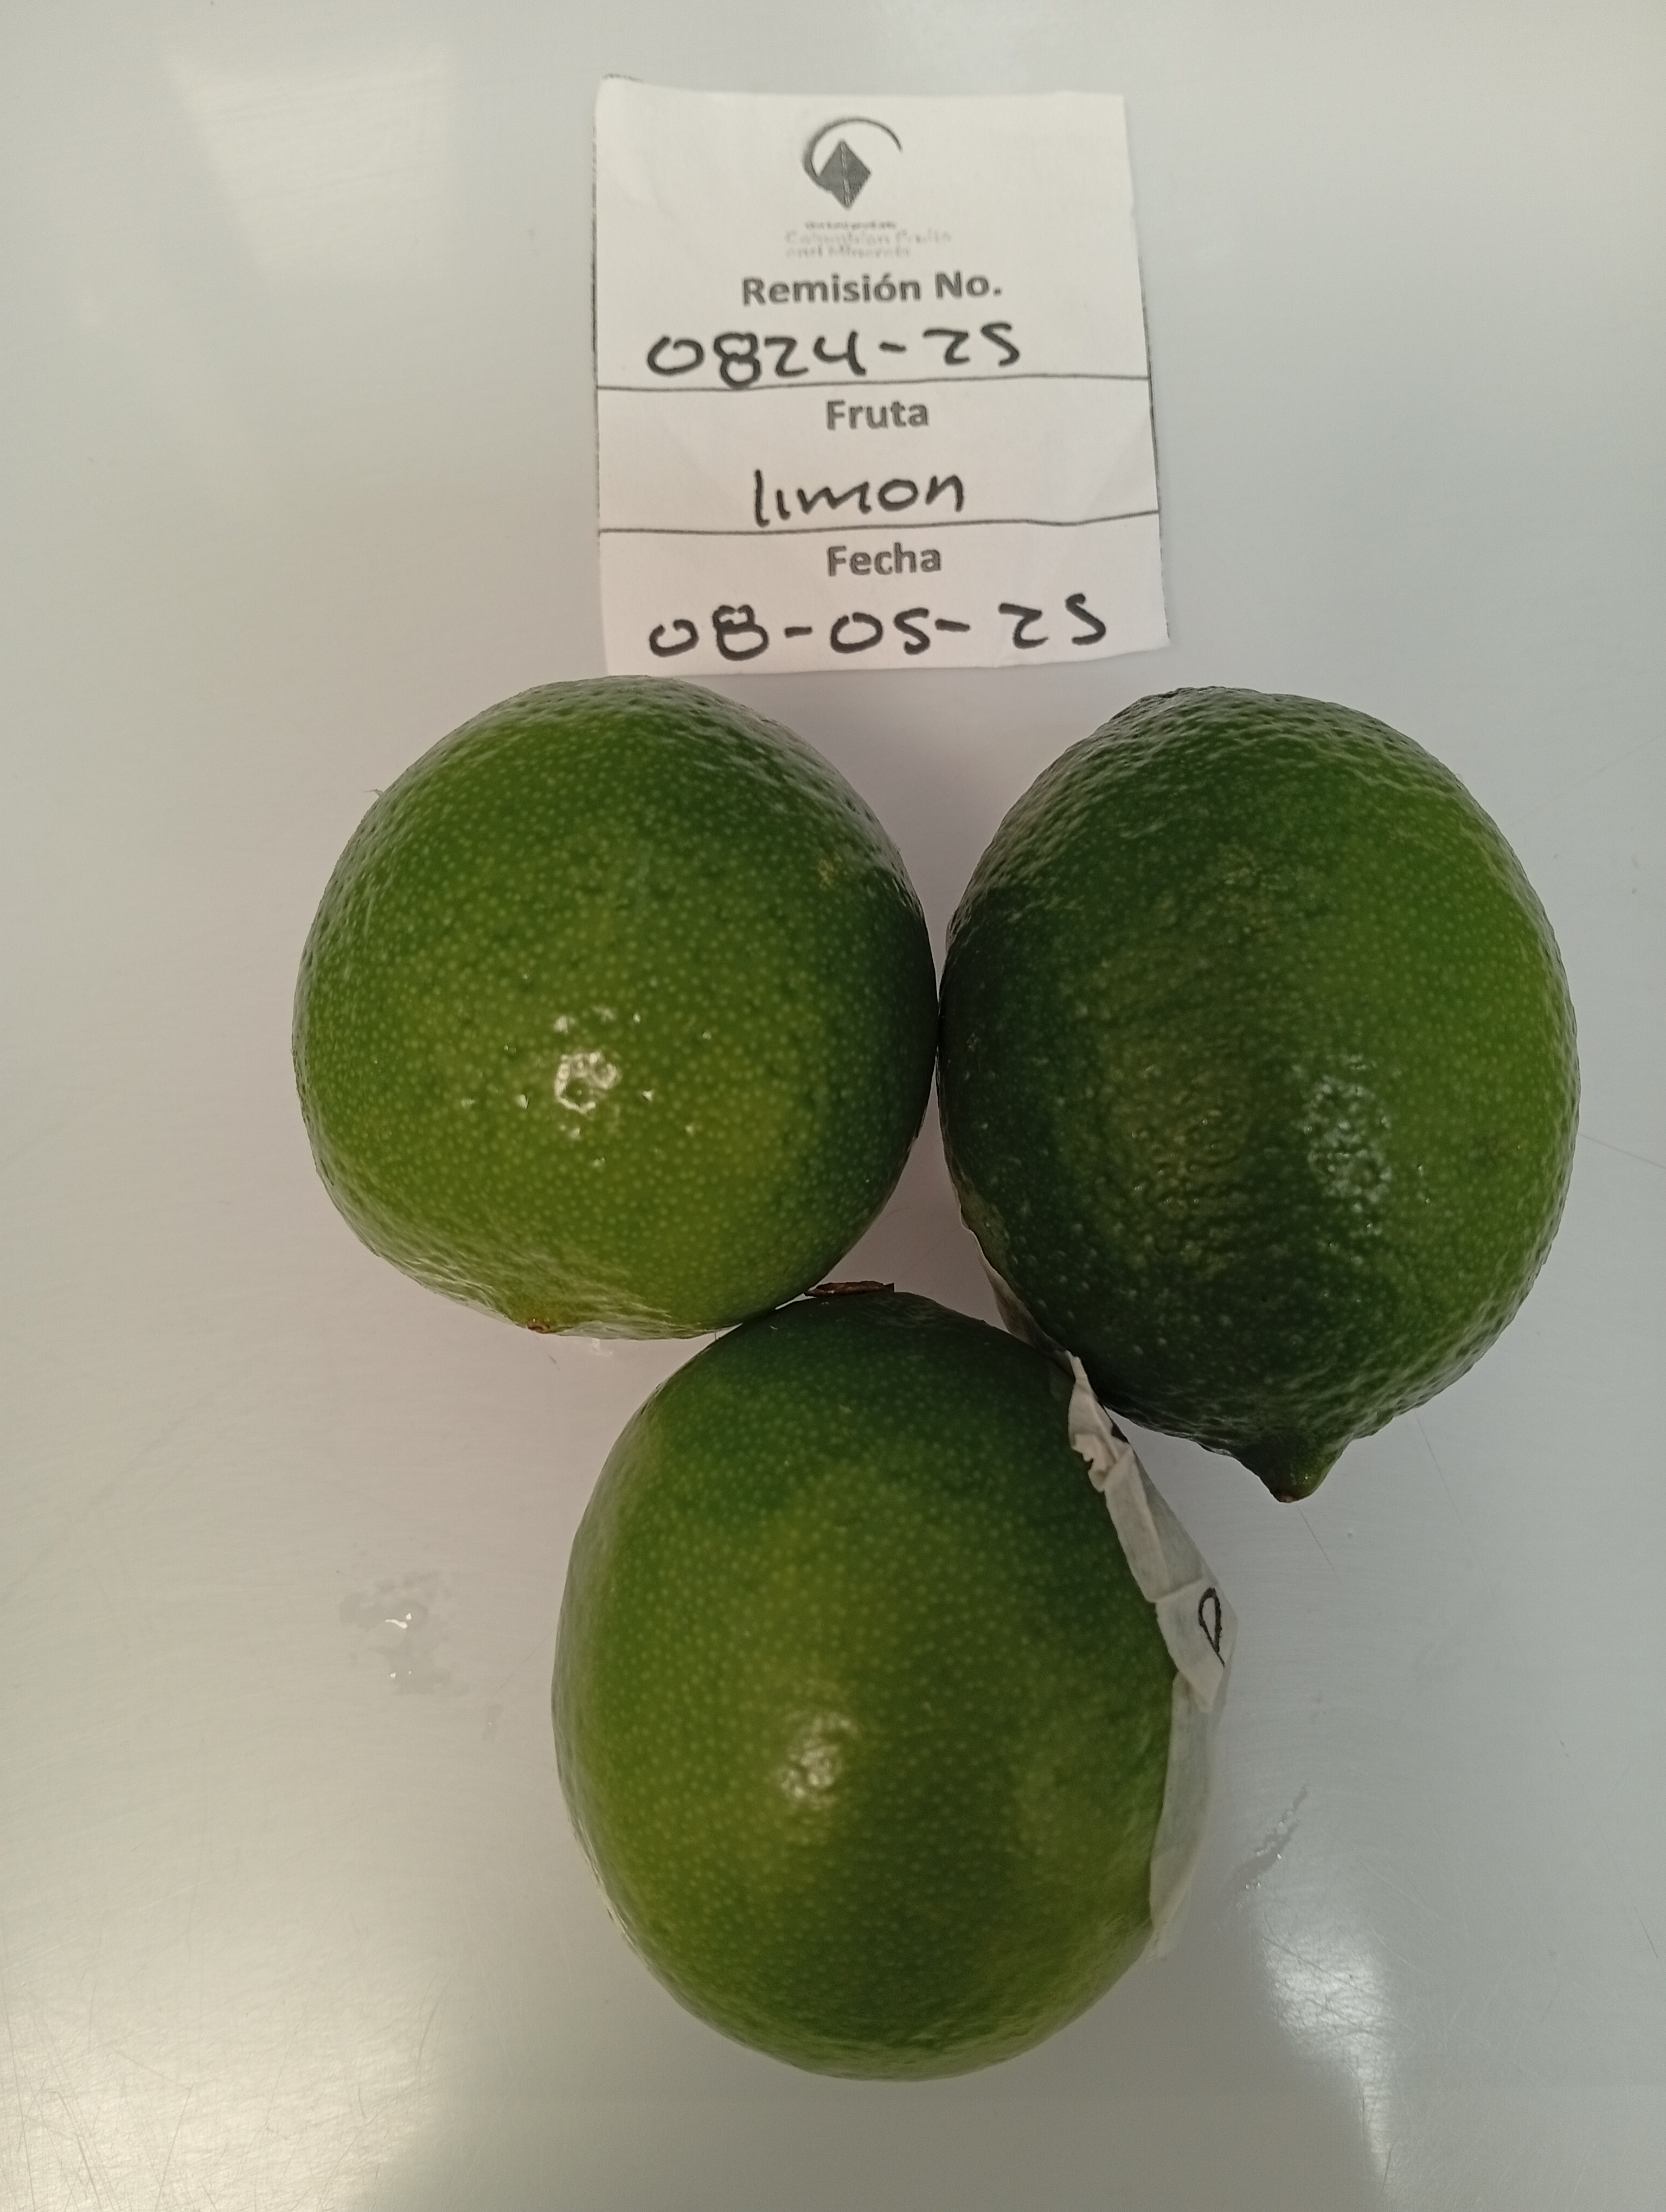 Colombian Fruits
and Minerals
Remisión No.
0824-25
Fruta
limon
Fecha
08-05-25